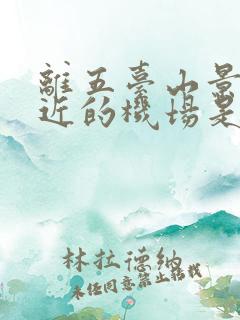 離五臺山景
近的機場是
林拉德納
未經同意禁止轉載